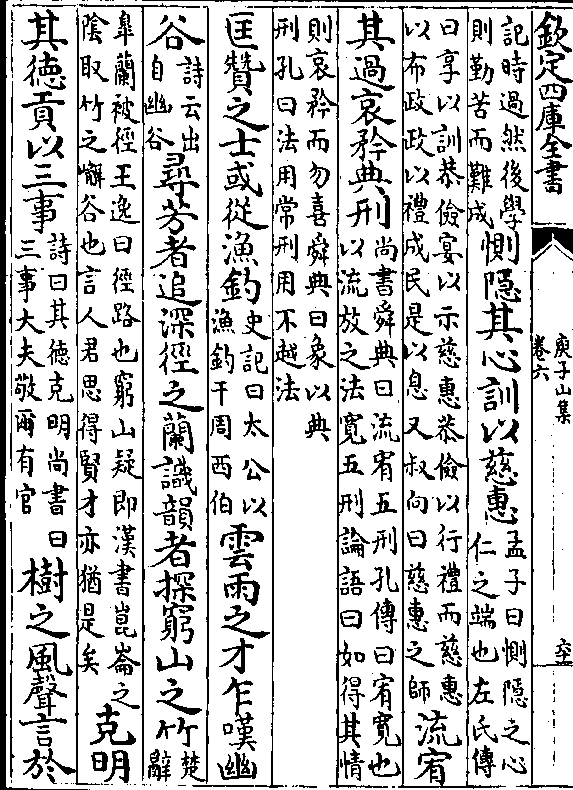 欽定四庫全書
庾子山集
卷六
記時過然後學
則勤苦而難成
惻隱其心訓以慈惠
孟子曰惻隱之心
仁之端也左氏傳
曰享以訓恭儉宴以示慈惠恭儉以行禮而慈惠
以布政政以禮成民是以息又叔向曰慈惠之師
流宥
其過哀矜典刑
尚書舜典曰流宥五刑孔傳曰宥寬也
以流放之法寬五刑論語曰如得其情
則哀矜而勿喜舜典曰象以典
刑孔曰法用常刑用不越法
匡贊之士或從漁釣
史記曰太公以
漁釣干周西伯
雲雨之才乍嘆幽
谷
詩云出
自幽谷
尋芳者追深徑之蘭識韻者探窮山之竹
楚
辭
臯蘭被徑王逸曰徑路也窮山疑即漢書崑崙之
陰取竹之嶰谷也言人君思得賢才亦猶是矣
克明
其德貢以三事
詩曰其德克明尚書曰
三事大夫敬爾有官
樹之風聲言於